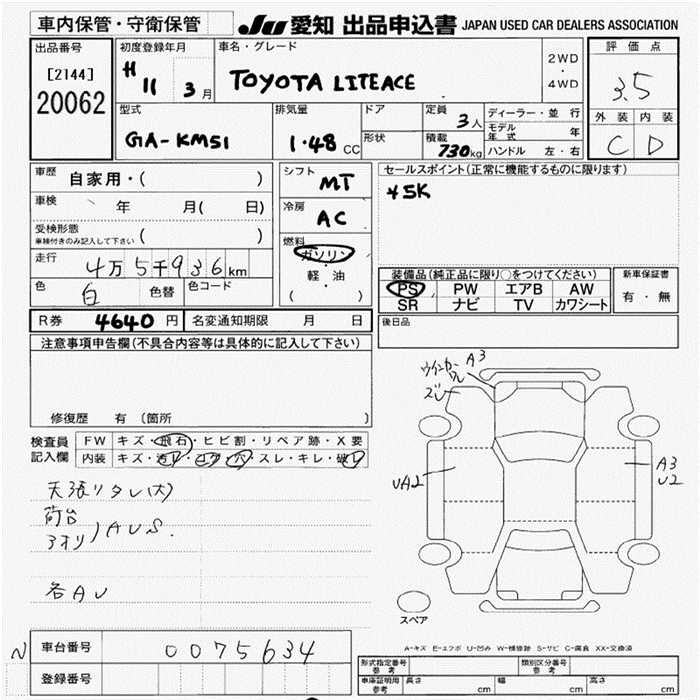 車内保管・守衛保管
JU 愛知 出品申込書 JAPAN USED CAR DEALERS ASSOCIATION
出品番号
[2144]
20062
初度登録年月
H 11 3月
車名・グレード
TOYOTA LITEACE
2WD
・
4WD
評価点
3.5
外装 内装
C D
型式
GA-KM51
排気量
1.48 CC
ドア
形状
定員
3人
積載
730kg
ディーラー・並行
モデル年式 年
ハンドル 左・右
車歴
自家用・( )
車検
年 月( 日)
受検形態
車検付きのみ記入して下さい ( )
走行
4万5千936km
色
白 色替
色コード
シフト
MT
冷房
AC
燃料
ガソリン
・
軽・油
( )
セールスポイント(正常に機能するものに限ります)
45K
装備品(純正品に限り○をつけてください)
PS PW エアB AW
SR ナビ TV カワシート
新車保証書
有・無
後日品
R券 4640円
名変通知期限 月 日
注意事項申告欄(不具合内容等は具体的に記入して下さい)
修復歴 有(箇所 )
検査員
記入欄
FW キズ・飛石・ヒビ割・リペア跡・X要
内装 キズ・汚レ・コゲ・穴・スレ・キレ・破レ
天張リタレ(大)
荷台
アオリ ) AUS.
各AU
ウインカー
ワレ
ズレ
A3
UA2
A3
U2
スペア
A-キズ E-エクボ U-凹み W-補修跡 S-サビ C-腐食 XX-交換済
N
車台番号
0075634
登録番号
形式指定番号
参考
類別区分番号
参考
車庫証明用
参考
長さ cm 幅 cm 高さ cm